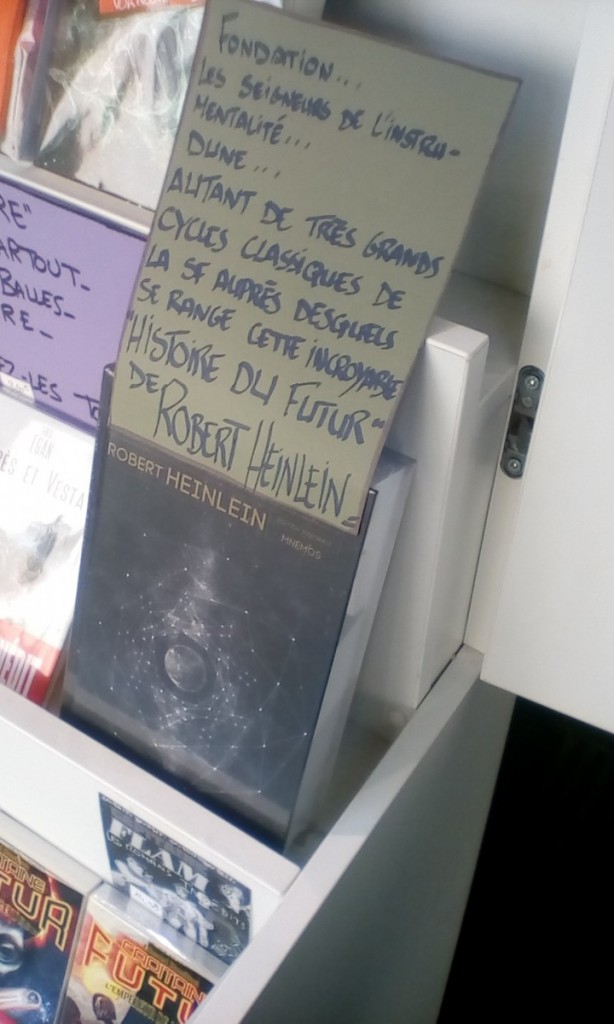 FONDATION...
LES SEIGNEURS DE L'INSTRU-
MENTALITÉ...
DUNE...
AUTANT DE TRÈS GRANDS
CYCLES CLASSIQUES DE
LA SF AUPRÈS DESQUELS
SE RANGE CETTE INCROYABLE
"HISTOIRE DU FUTUR"
DE ROBERT HEINLEIN-
ROBERT HEINLEIN
MNEMOS
RE"
ARTOUT-
BALLES-
RE-
EZ-LES
EGAN
ÈS ET VESTA
INÉDIT
FLAM
CAPITAINE
FUTUR
L'EMPEREUR